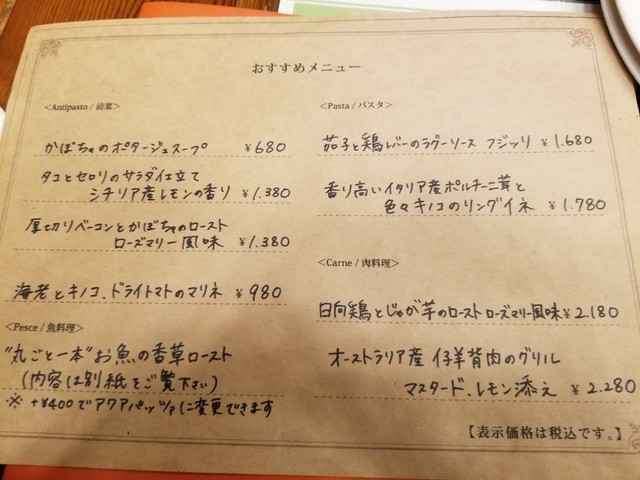 おすすめメニュー
<Antipasto / 前菜>
かぼちゃのポタージュスープ ¥680
タコとセロリのサラダ仕立て
シチリア産レモンの香り ¥1.380
厚切りベーコンとかぼちゃのロースト
ローズマリー風味 ¥1.380
海老とキノコ、ドライトマトのマリネ ¥980
<Pesce / 魚料理>
"丸ごと一本"お魚の香草ロースト
(内容は別紙をご覧下さい)
※ +¥400でアクアパッツァに変更できます
<Pasta / パスタ>
茄子と鶏レバーのラグーソース フジッリ ¥1.680
香り高いイタリア産ポルチーニ茸と
色々キノコのリングイネ ¥1.780
<Carne / 肉料理>
日向鶏とじゃが芋のロースト ローズマリー風味 ¥2.180
オーストラリア産 仔羊背肉のグリル
マスタード、レモン添え ¥2.280
【表示価格は税込です。】